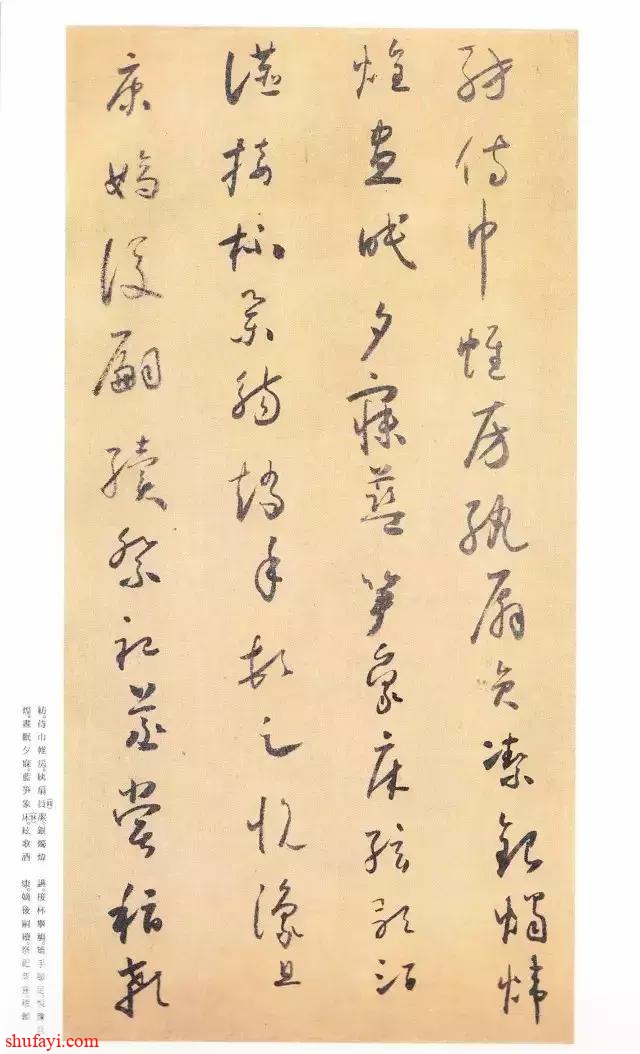 紡侍巾帷房紈扇員潔銀燭煒
煌晝眠夕寐藍笋象床絃歌酒
讌接杯舉觴矯手頓足悅豫且
康嫡後嗣續祭祀蒸嘗稽顙
紡。侍巾帷房。紈扇員(圓)潔。銀燭煒
煌。晝眠夕寐。藍笋象床(牀)。絃歌酒
讌。接杯舉觴。矯手頓足。悅豫且
康。嫡後嗣續。祭祀蒸嘗。稽顙
shufayi.com